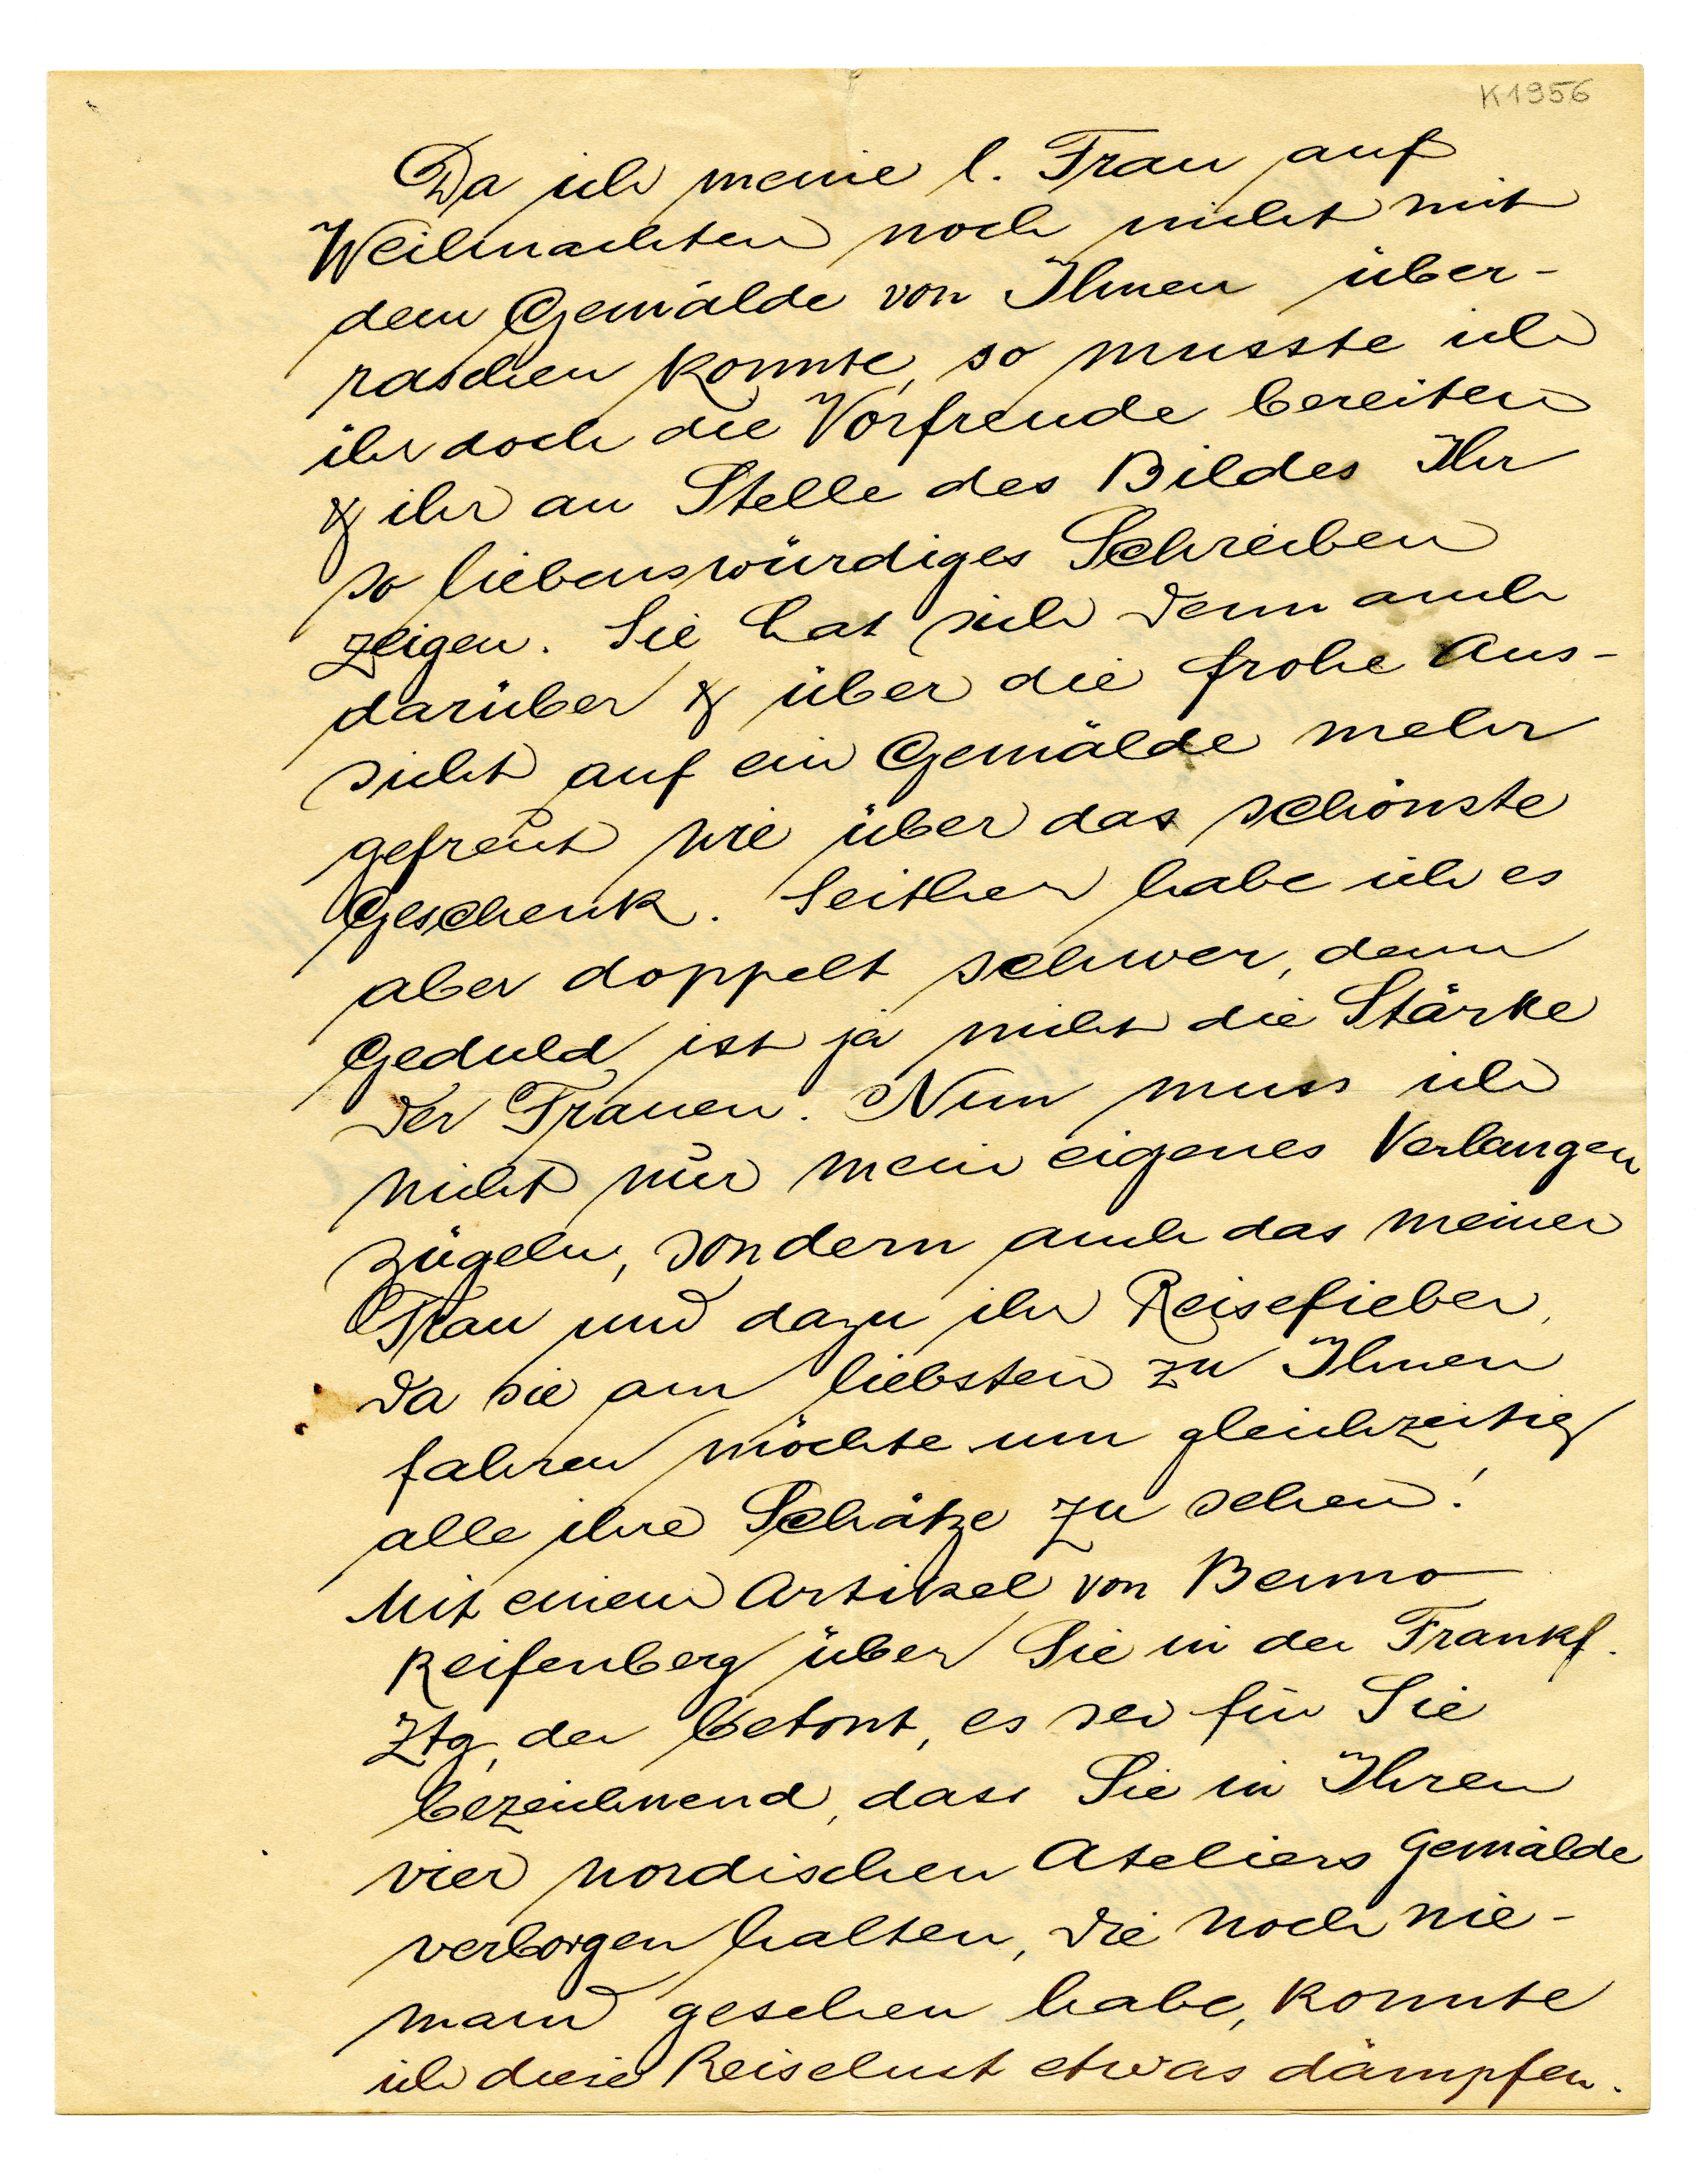 K1956
Da ich meine l. Frau auf
Weihnachten noch nicht mit
dem Gemälde von Ihnen über-
raschen konnte, so musste ich
ihr doch die Vorfreude bereiten
& ihr an Stelle des Bildes Ihr
so liebenswürdiges Schreiben
zeigen. Sie hat sich denn auch
darüber & über die frohe Aus-
sicht auf ein Gemälde mehr
gefreut wie über das schönste
Geschenk. Seither habe ich es
aber doppelt schwer, denn
Geduld ist ja nicht die Stärke
der Frauen. Nun muss ich
nicht nur mein eigenes Verlangen
zügeln, sondern auch das meiner
Frau und dazu ihr Reisefieber,
da sie am liebsten zu Ihnen
fahren möchte um gleichzeitig
alle ihre Schätze zu sehen!
Mit einem Artikel von Benno
Reifenberg über Sie in der Frankf.
Ztg, der betont, es sei für Sie
bezeichnend, dass Sie in Ihren
vier nordischen Ateliers Gemälde
verborgen halten, die noch nie-
mand gesehen habe, konnte
ich diese Reiselust etwas dämpfen.